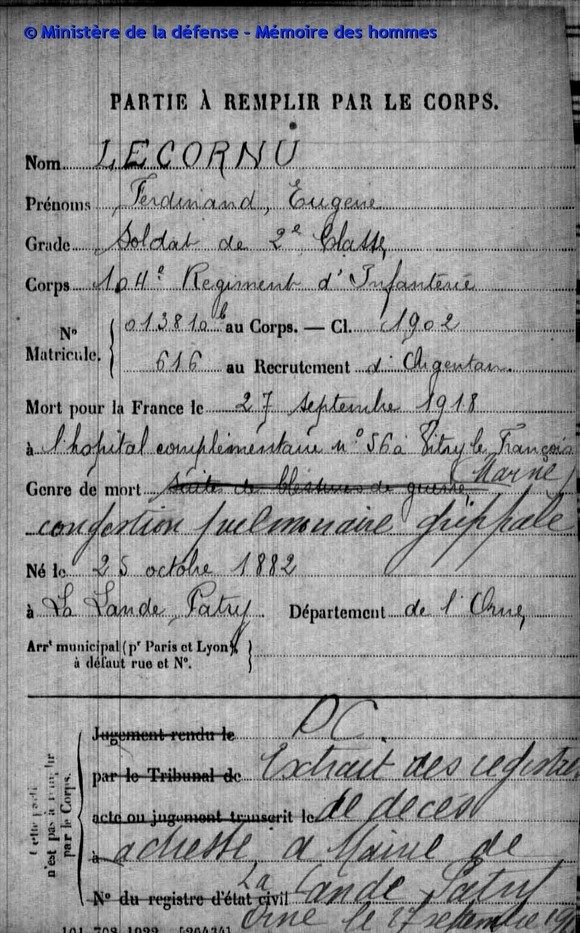 © Ministère de la défense - Mémoire des hommes
PARTIE À REMPLIR PAR LE CORPS.
Nom LECORNU
Prénoms Ferdinand, Eugène
Grade Soldat de 2e Classe
Corps 104e Régiment d'Infanterie
No Matricule. 013810b au Corps. — Cl. 1902
616 au Recrutement d'Argentan.
Mort pour la France le 27 septembre 1918
à l'hopital complémentaire no 56 à Vitry le François
Marne
Genre de mort Suites de blessures de guerre,
congestion pulmonaire grippale
Né le 25 octobre 1882
à La Lande Patry Département de l'Orne,
Arrt municipal (pr Paris et Lyon),
à défaut rue et No.
Cette partie n'est pas à remplir par le Corps.
Jugement rendu le DC.
par le Tribunal de Extrait des registres
acte ou jugement transcrit le de décès
à adressé à Maire de
No du registre d'état civil La Lande Patry
Orne le 27 septembre